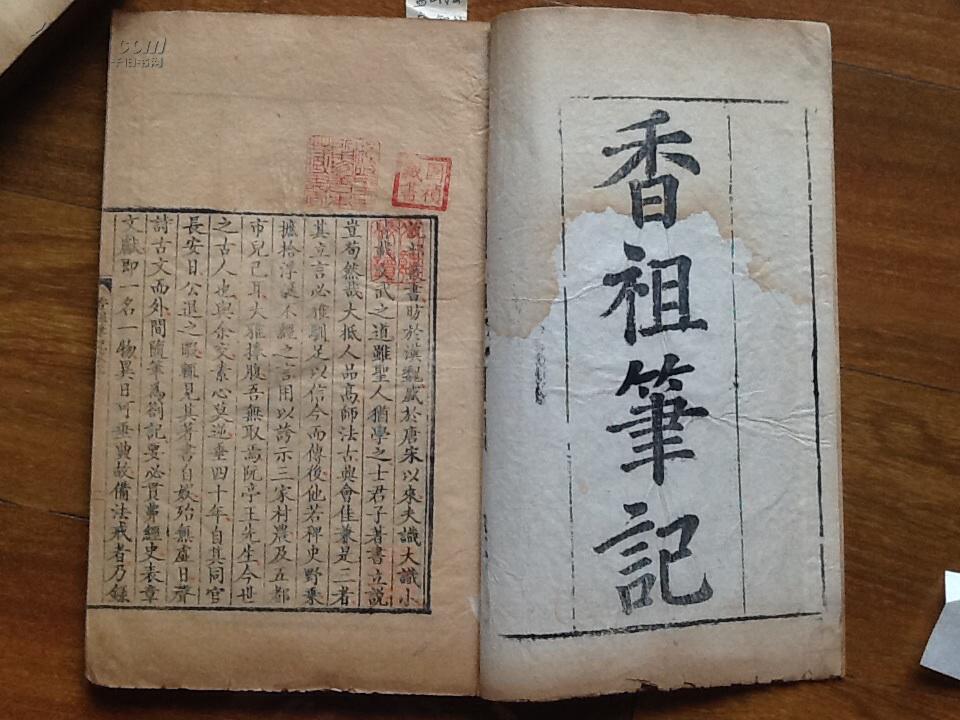 香祖筆記
說部叢書昉於漢魏盛於唐宋以來夫識大識小
皆載文武之道雖聖人猶學之士君子著書立說
豈苟然哉大抵人品高師法古興會佳兼是三者
其立言必雅馴足以信今而傳後他若稗史野乗
摭拾浮議不經之言用以誇示三家村農及五都
市兒已耳大雅捧腹吾無取焉阮亭王先生今世
之古人也與余交素心莫逆垂四十年自其同官
長安日公退之暇輒見其著書自娛殆無虛日齋
詩古文而外間隨筆為劄記要必貫弗經史表章
文獻即一名一物異日可垂典故備法戒者乃錄
com